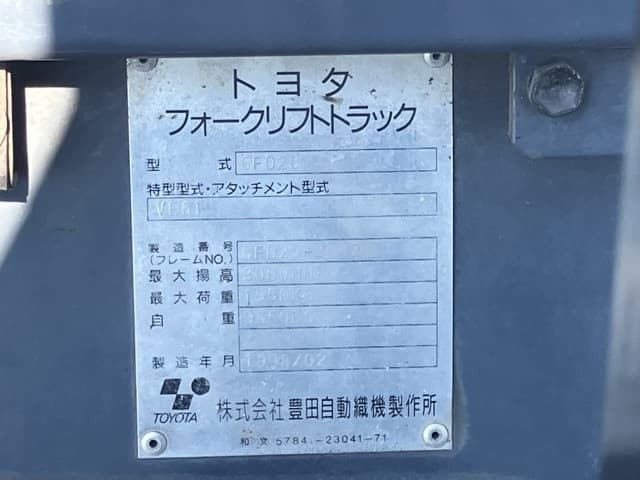 トヨタ
フォークリフトトラック
型 式
特型型式・アタッチメント型式
製造番号
(フレームNO.)
最大揚高
最大荷重
自 重
製造年月 1998/02
TOYOTA 株式会社 豊田自動織機製作所
和 文 5784.-23041-71